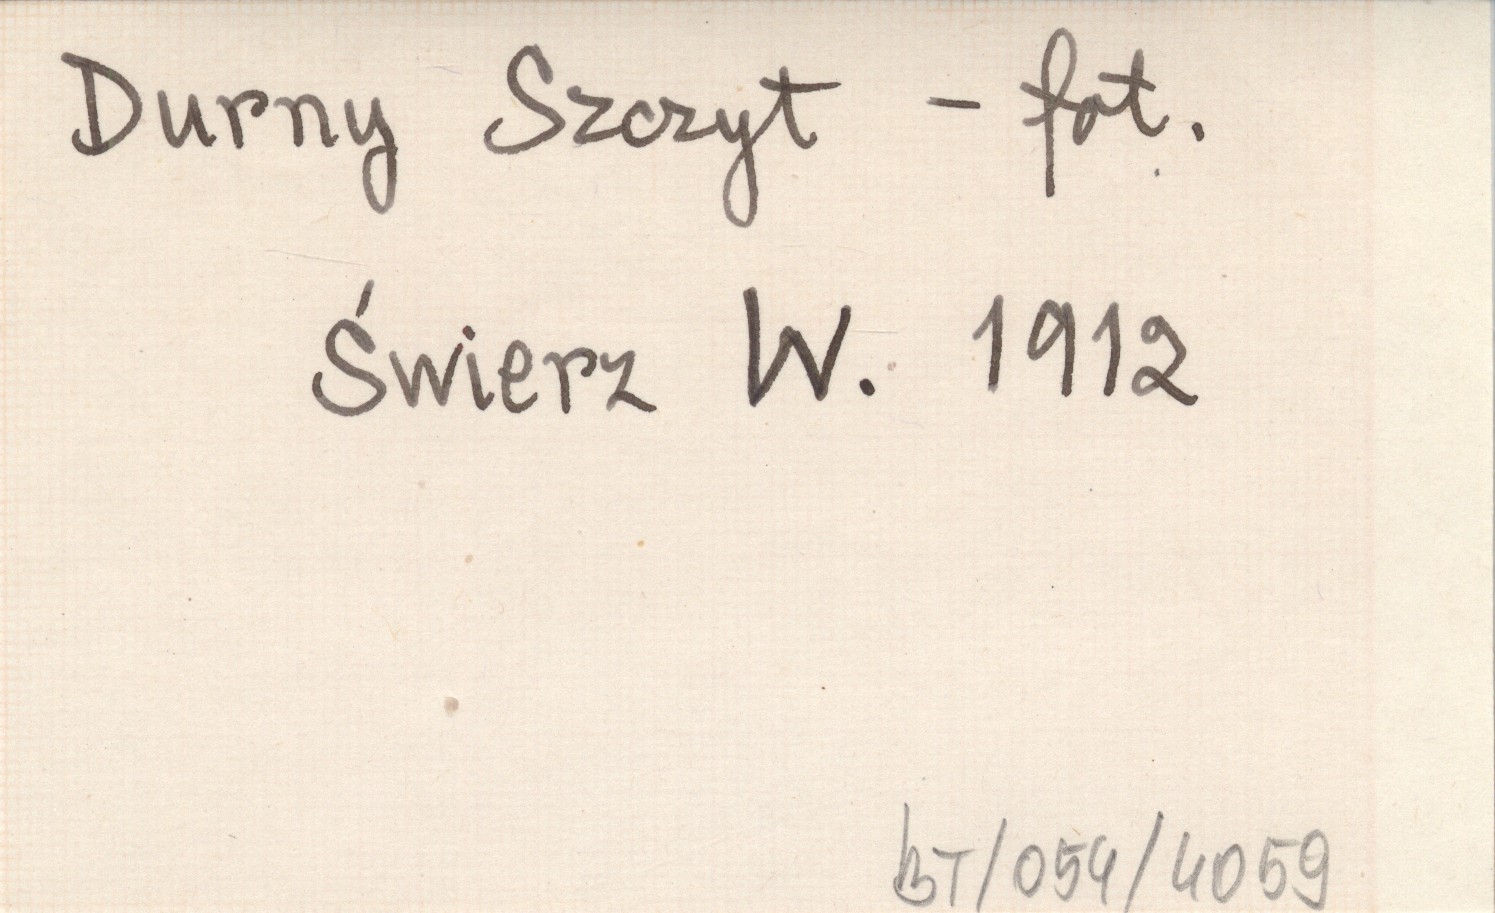 Durny Szczyt - fot.
Świerz W. 1912
BT/054/4059